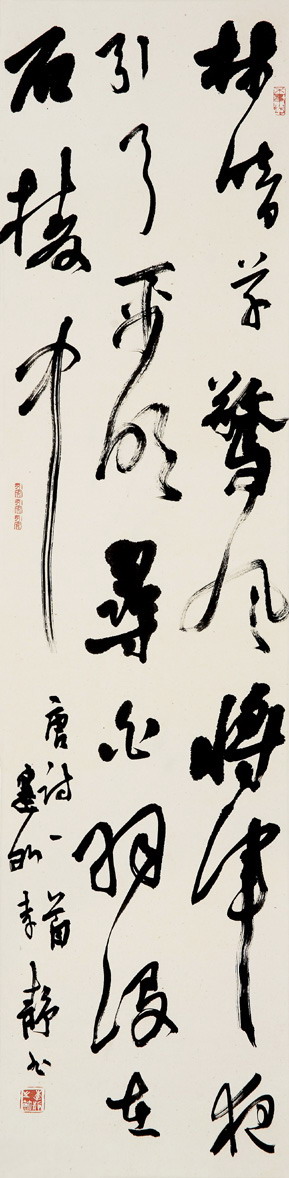 林暗草驚風將軍夜
引弓平明尋白羽沒在
石棱中
唐詩一首
李靜书